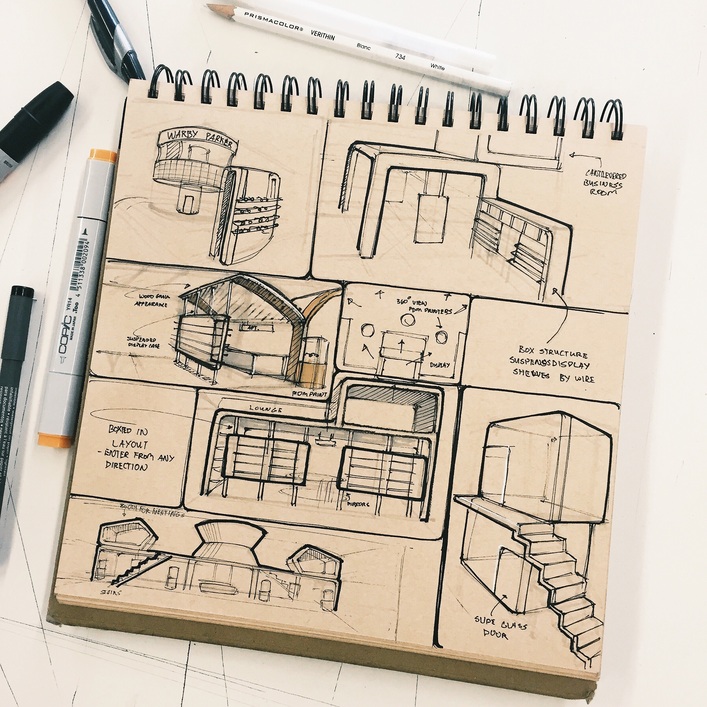 PRISMACOLOR® VERITHIN Blanc 734 White
WARBY PARKER
CANTILEVERED
BUSINESS
ROOM
WOOD BEAM
APPEARANCE
SUSPENDED
DISPLAY CASE
360° VIEW
FROM PRINTERS
DISPLAY
BOX STRUCTURE
SUSPENDS DISPLAY
SHELVES BY WIRE
LOUNGE
BOXED IN
LAYOUT
- ENTER FROM ANY
DIRECTION
MIRRORS
ROOM FOR MEETINGS
STAIRS
SLIDE GLASS
DOOR
COPIC
4 511338 002094